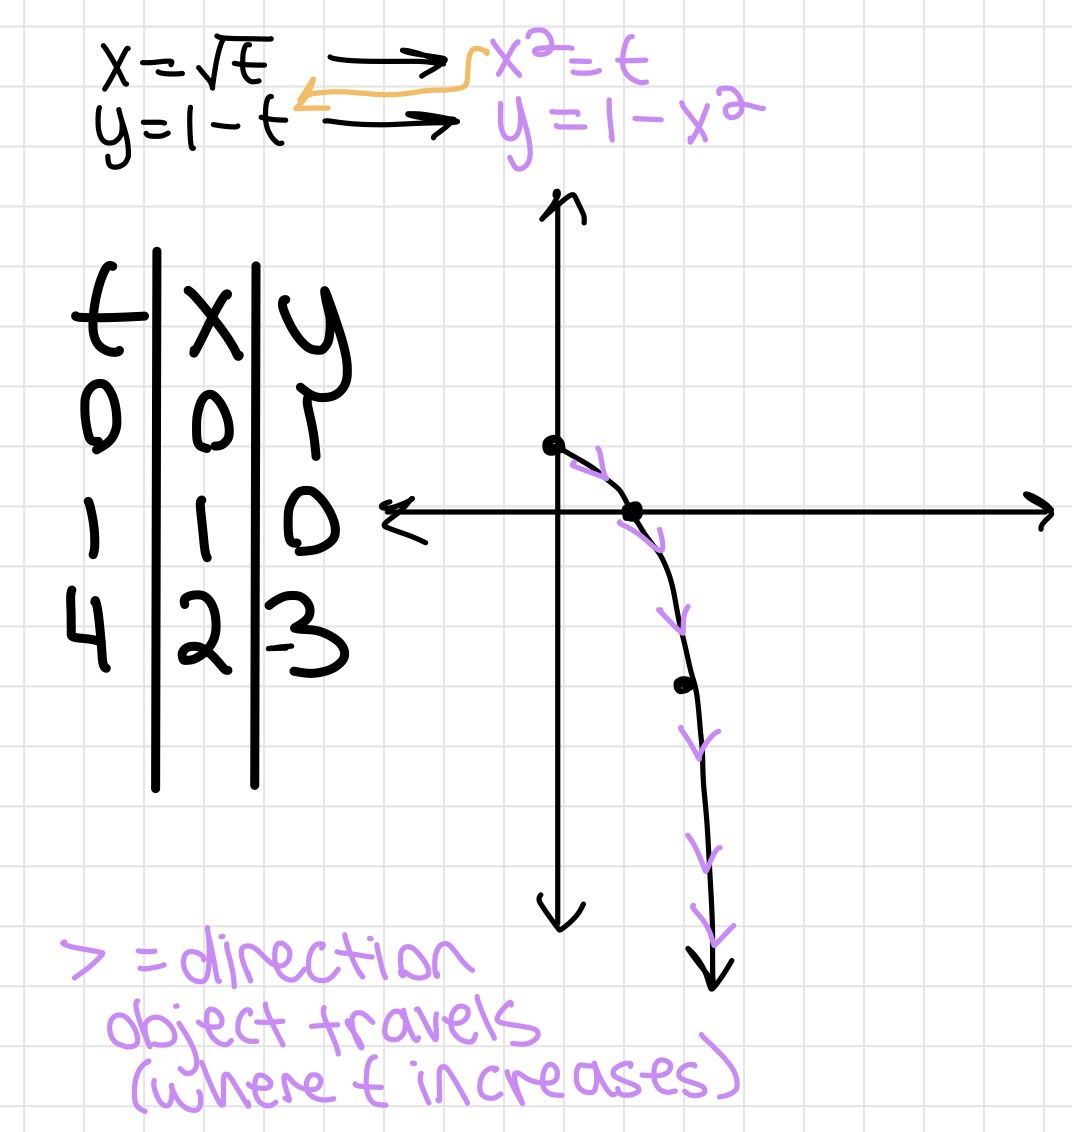 x = √t → x² = t
y = 1 - t → y = 1 - x²
t x y
0 0 1
1 1 0
4 2 -3
> = direction
object travels
(where t increases)